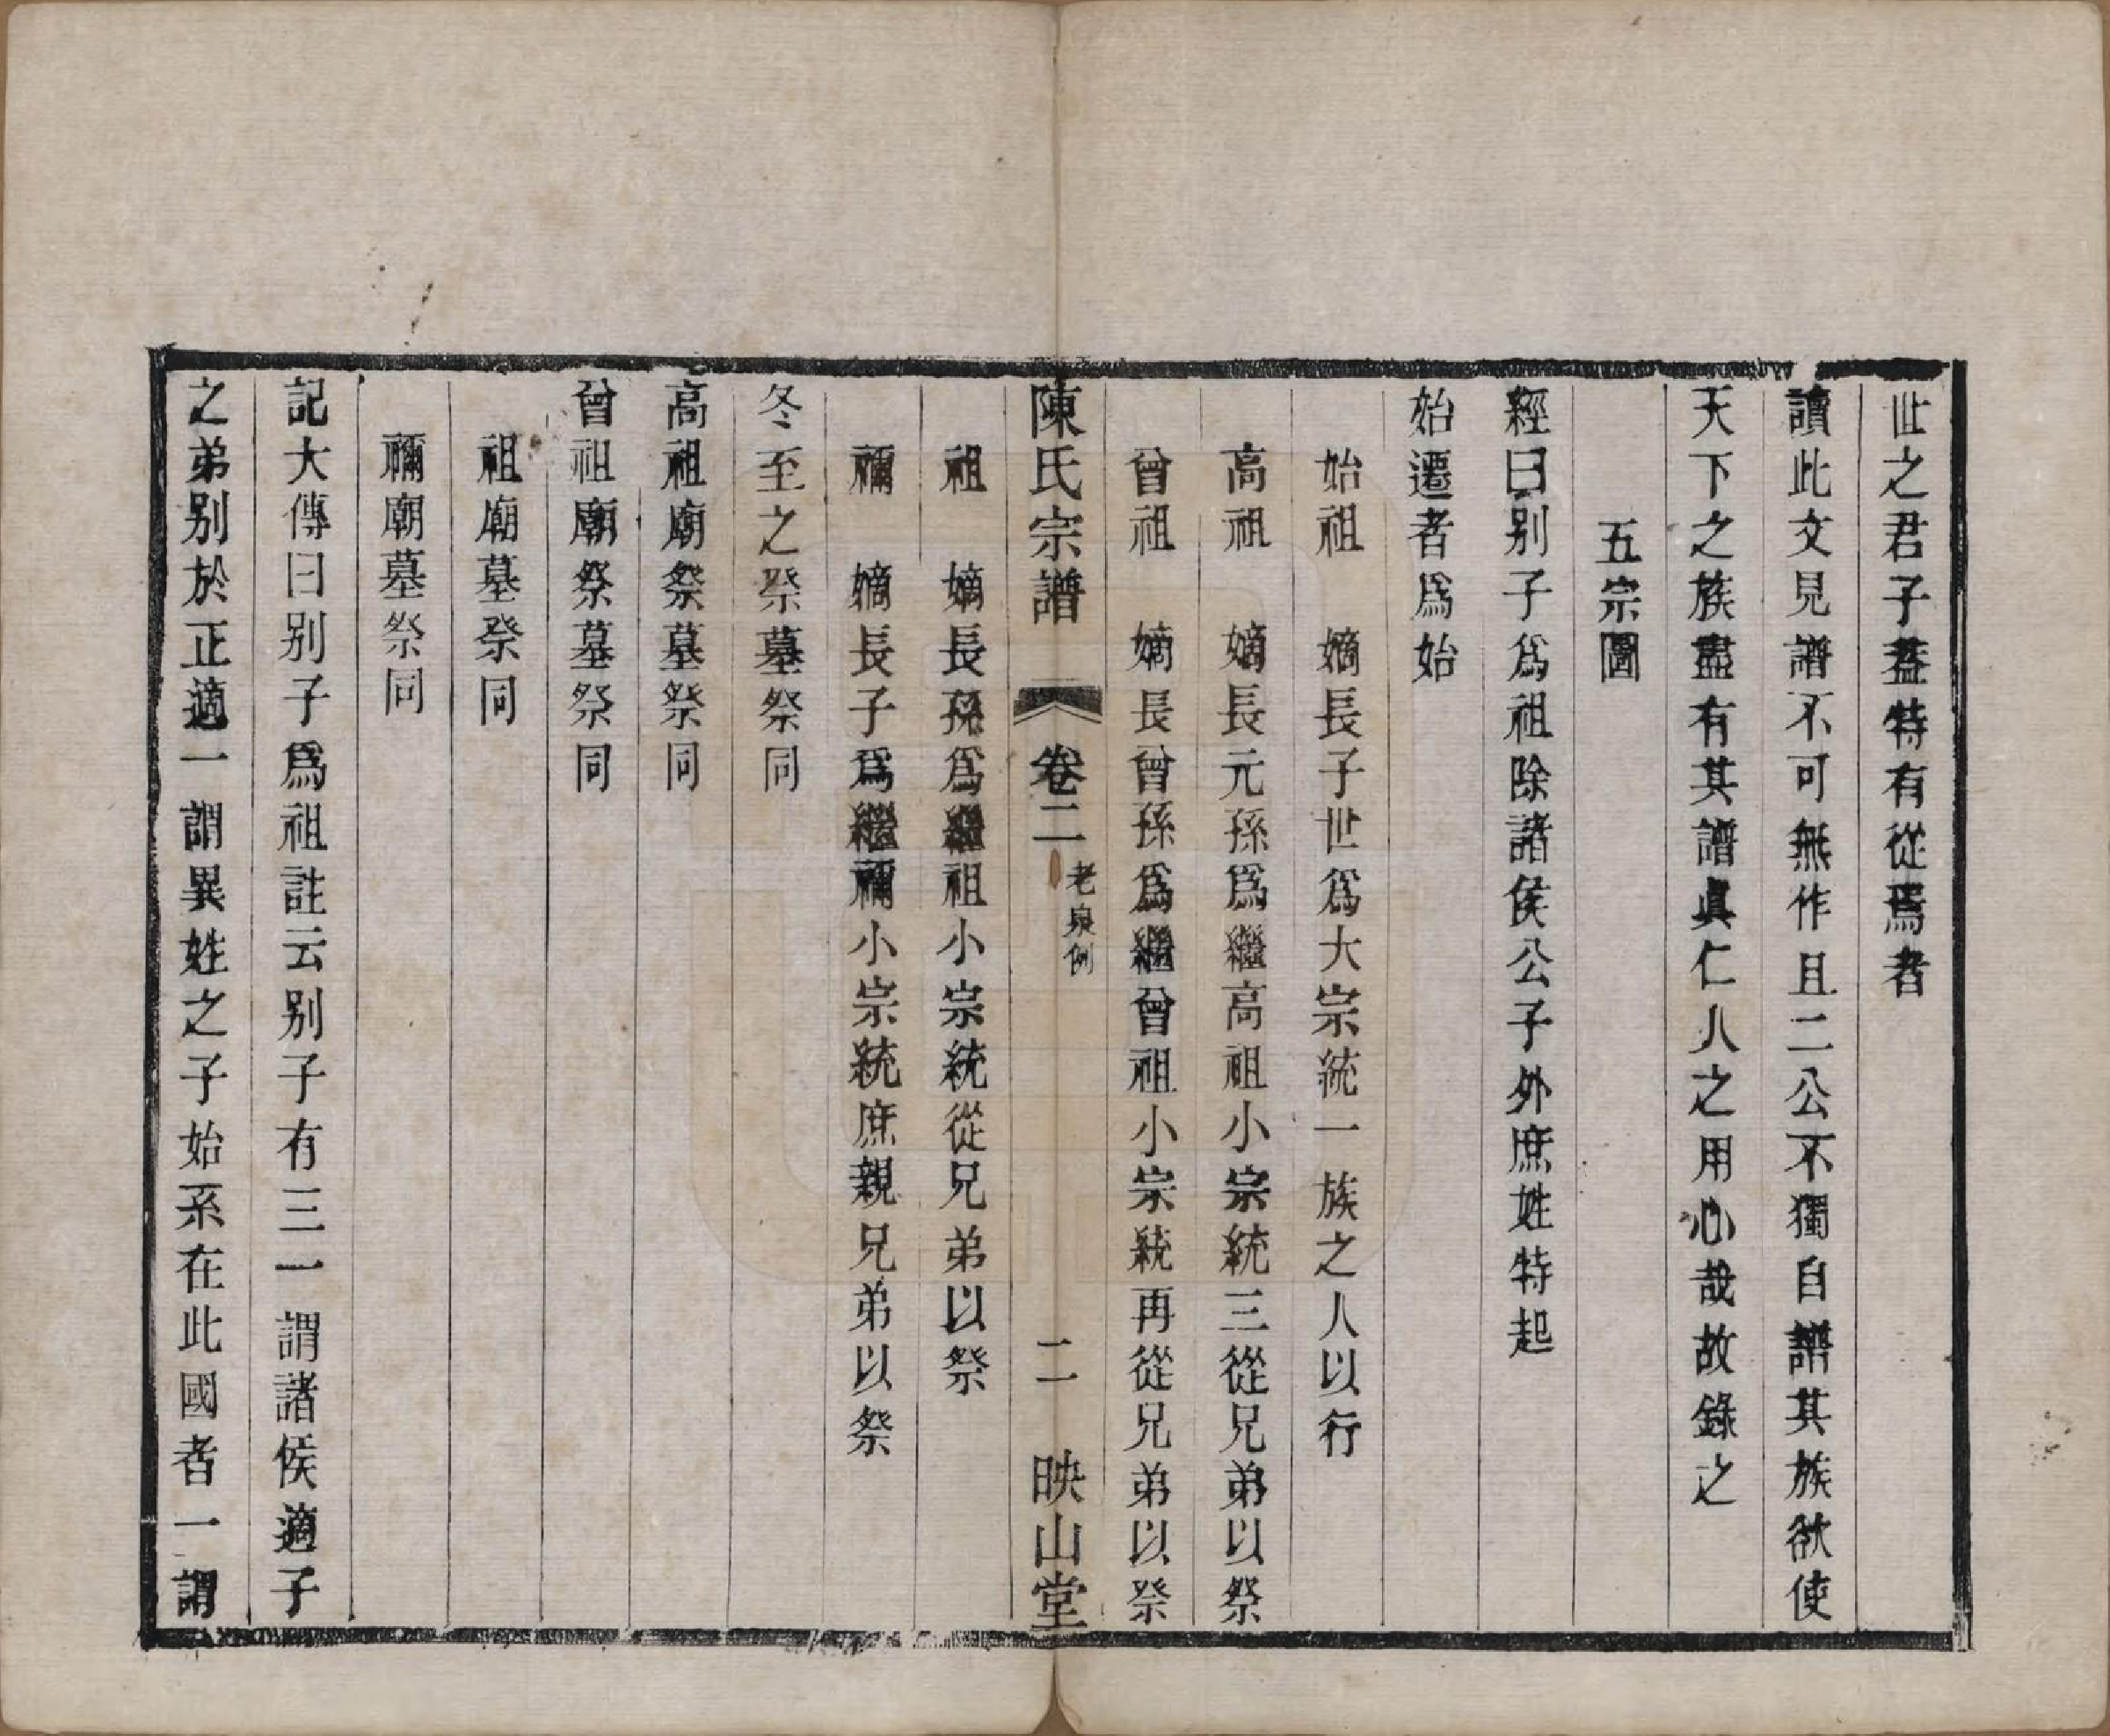 世之君子葢特有從焉者
讀此文見譜不可無作且二公不獨自譜其族欲使
天下之族盡有其譜眞仁人之用心哉故錄之
五宗圖
經曰別子爲祖除諸侯公子外庶姓特起
始遷者爲始
始祖　嫡長子世爲大宗統一族之人以行
高祖　嫡長元孫爲繼高祖小宗統三從兄弟以祭
曾祖　嫡長曾孫爲繼曾祖小宗統再從兄弟以祭
陳氏宗譜　卷二　老泉例　二　映山堂
祖　嫡長孫爲繼祖小宗統從兄弟以祭
禰　嫡長子爲繼禰小宗統庶親兄弟以祭
冬至之祭墓祭同
高祖廟祭墓祭同
曾祖廟祭墓祭同
祖廟墓祭同
禰廟墓祭同
記大傳曰別子爲祖註云別子有三一謂諸侯適子
之弟別於正適一謂異姓之子始系在此國者一謂